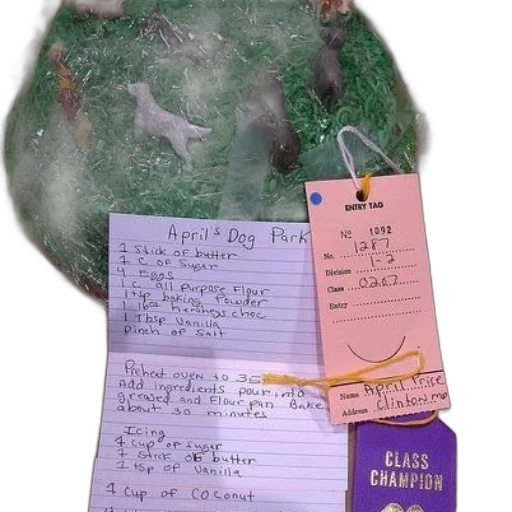 April's Dog Park
1 Stick of butter
1 C of Sugar
4 Eggs
1 C all Purpose Flour
1 tsp baking Powder
1 16oz hersheys choc
1 Tbsp Vanilla
Pinch of Salt
Preheat oven to 35
Add ingredients pour into
greased and Flour pan Bake
about 30 minutes
Icing
4 Cup of sugar
1 Stick of butter
1 tsp of Vanilla
1 Cup of Coconut
ENTRY TAG
No 1092
No. 1287
Division 1-2
Class 0207
Entry
Name April Price
Address Clinton mo
CLASS
CHAMPION